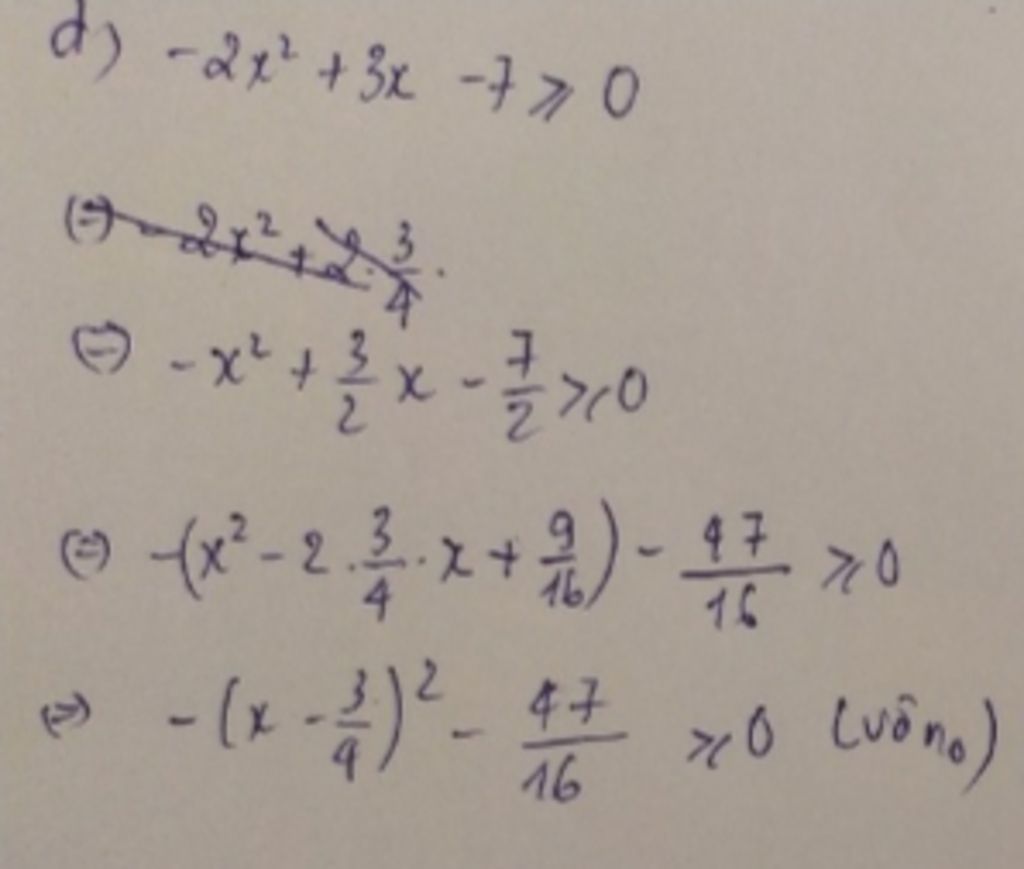 d) -2x² + 3x - 7 ⩾ 0
⇔ - 2x² + 2 · 3/4 ·
⇔ - x² + 3/2 x - 7/2 ⩾ 0
⇔ -(x² - 2 · 3/4 · x + 9/16) - 47/16 ⩾ 0
⇔ - (x - 3/4)² - 47/16 ⩾ 0 (vô n₀)